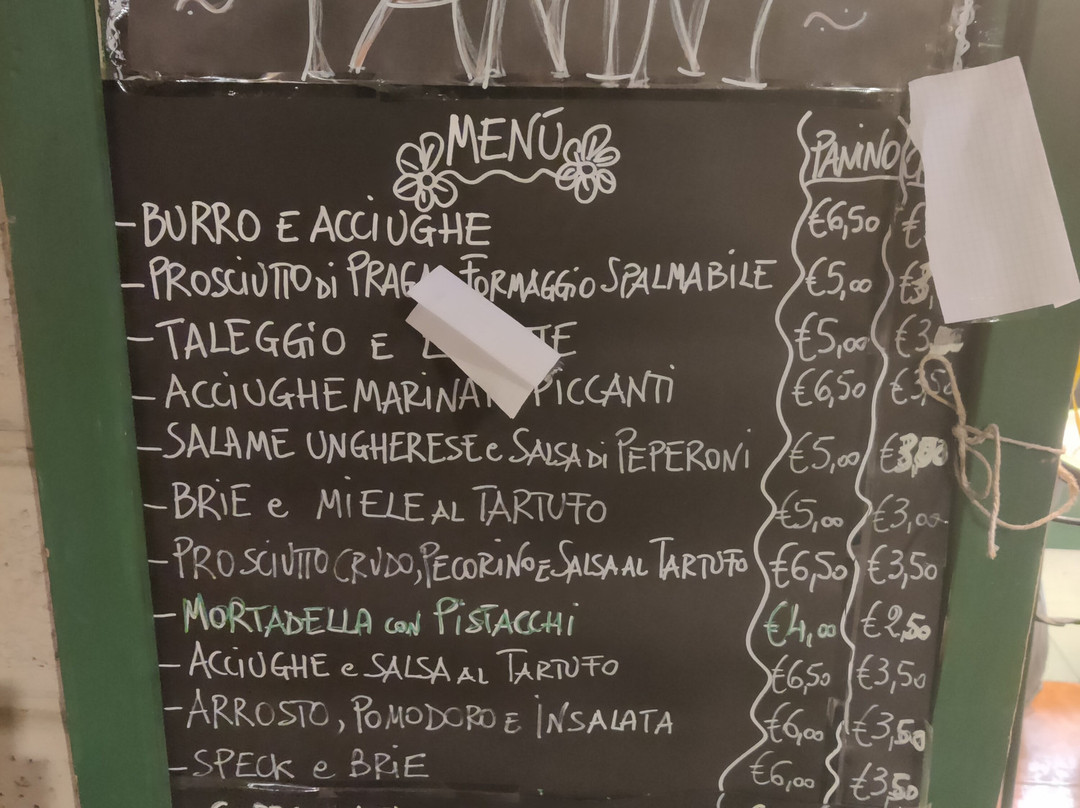 ~ PANINI ~
MENÚ PANINO
- BURRO E ACCIUGHE €6,50
- PROSCIUTTO di PRAGA FORMAGGIO SPALMABILE €5,00
- TALEGGIO E €5,00
- ACCIUGHE MARINATE PICCANTI €6,50 €3,50
- SALAME UNGHERESE e SALSA Di PEPERONI €5,00 €3,00
- BRIE e MIELE AL TARTUFO €5,00 €3,00
- PROSCIUTTO CRUDO, PECORINO E SALSA AL TARTUFO €6,50 €3,50
- MORTADELLA con PISTACCHI €4,00 €2,50
- ACCIUGHE e SALSA AL TARTUFO €6,50 €3,50
- ARROSTO, POMODORO E INSALATA €6,00 €3,50
- SPECK e BRIE €6,00 €3,50